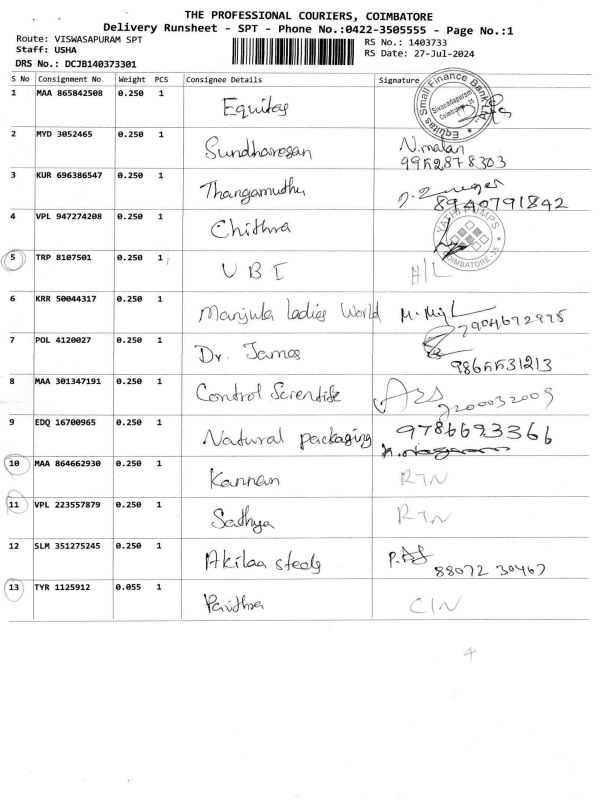 THE PROFESSIONAL COURIERS, COIMBATORE
Delivery Runsheet - SPT - Phone No.:0422-3505555 - Page No.:1
Route: VISWASAPURAM SPT
Staff: USHA
DRS No.: DCJB140373301
RS No.: 1403733
RS Date: 27-Jul-2024
S No Consignment No Weight PCS Consignee Details Signature
1 MAA 865842508 0.250 1 Equitas
Equitas Small Finance Bank Ltd. Sivanandapuram Coimbatore
2 MYD 3052465 0.250 1 Sundharesan N.malar
9952878303
3 KUR 696386547 0.250 1 Thangamuthu
8940791842
4 VPL 947274208 0.250 1 Chithra
YATHI PUMPS COIMBATORE-35
5 TRP 8107501 0.250 1 UBI A/L
6 KRR 50044317 0.250 1 Manjula ladies World
7904672995
7 POL 4120027 0.250 1 Dr. James
9865531213
8 MAA 301347191 0.250 1 Control Scientific
9200032009
9 EDQ 16700965 0.250 1 Natural packaging 9786693366
10 MAA 864662930 0.250 1 Kannan RTN
11 VPL 223557879 0.250 1 Sathya RTN
12 SLM 351275245 0.250 1 Akilaa steels
88072 30467
13 TYR 1125912 0.055 1 Pavithra CIN
4